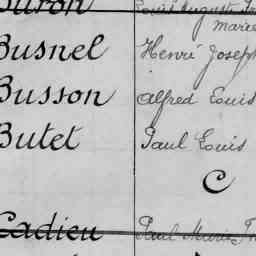 Buron Louis Auguste
Marie
Busnel Henri Joseph
Busson Alfred Louis
Butet Paul Louis
C
Cadieu Paul Marie